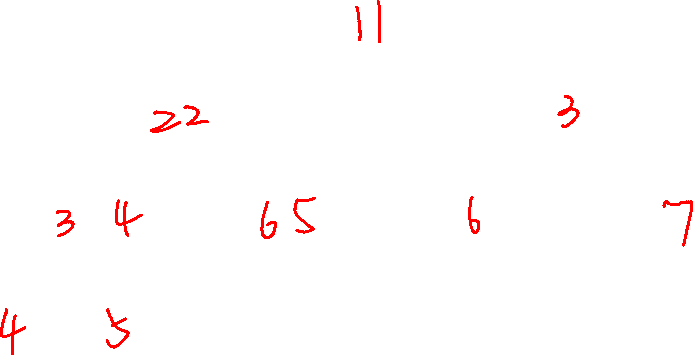 11
22 3
3 4 65 6 7
4 5